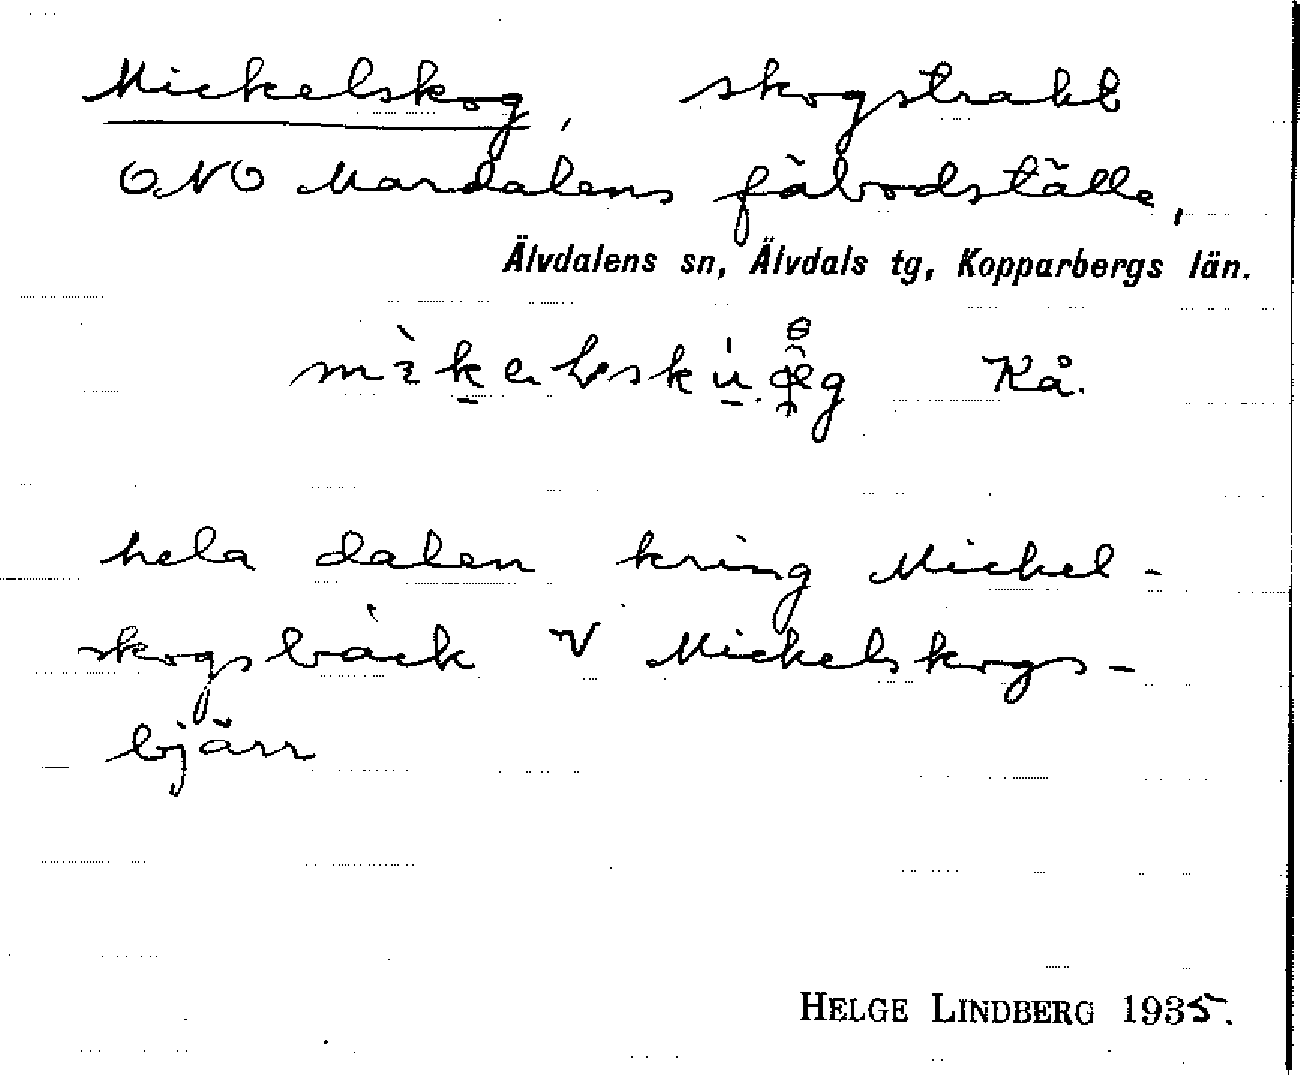 Mickelskog, skogstrakt
ONO Mardalens fäbodställe,
Älvdalens sn, Älvdals tg, Kopparbergs län.
Kå.
hela dalen kring Mickel-
skogsbäck V Mickelskogs-
bjärr
HELGE LINDBERG 1935.